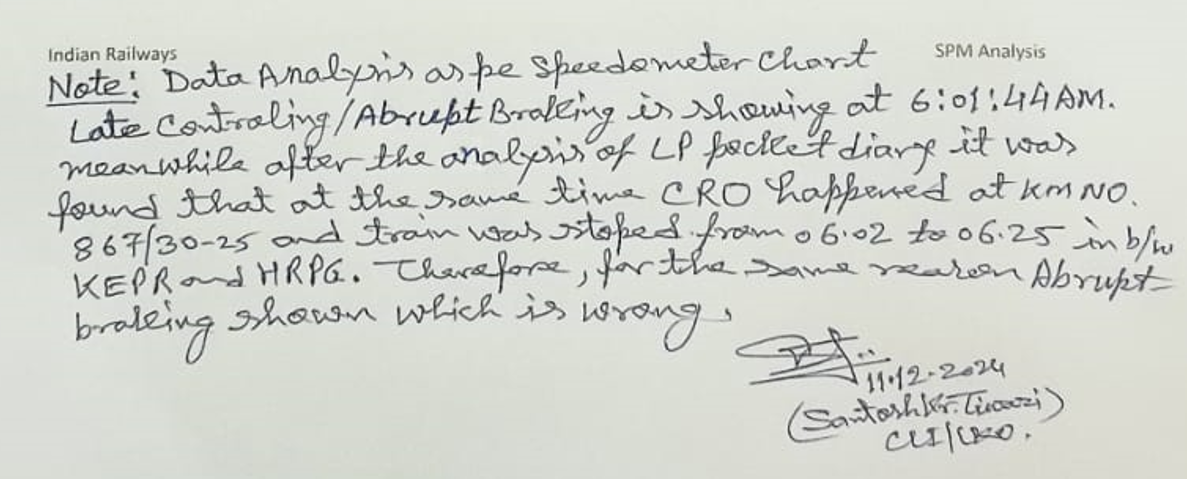 Indian Railways SPM Analysis
Note: Data Analysis as pe Speedometer Chart
Late Controling/Abrupt Braking is showing at 6:01:44 AM.
meanwhile after the analysis of LP pocket diary it was
found that at the same time CRO happened at KM NO.
867/30-25 and train was stoped from 06.02 to 06.25 in b/w
KEPR and HRPG. Therefore, for the same reason Abrupt-
braking shown which is wrong.
11.12.2024
(Santosh Kr. Tiwari)
CLI/LKO.